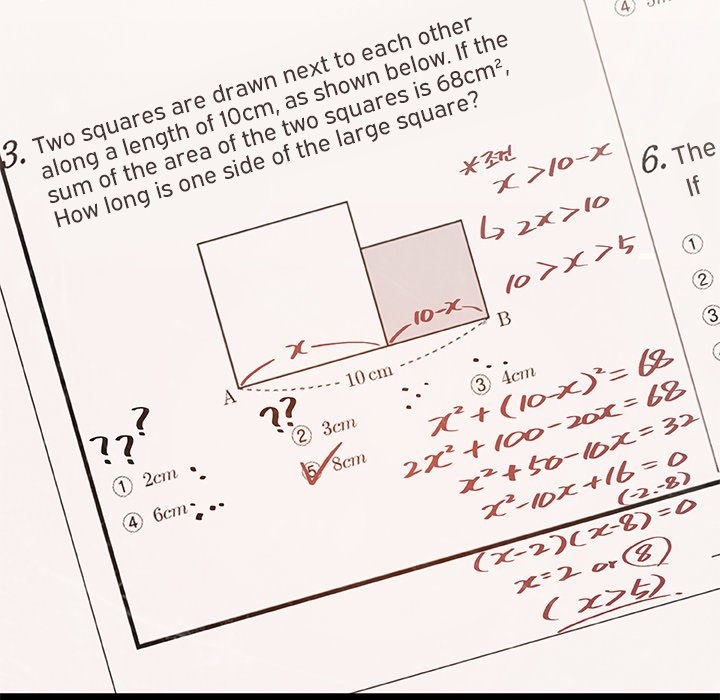 3. Two squares are drawn next to each other
along a length of 10cm, as shown below. If the
sum of the area of the two squares is 68cm²,
How long is one side of the large square?
*조건
x > 10-x
↳ 2x > 10
10 > x > 5
x
10-x
A
10 cm
B
???
① 2cm
??
② 3cm
③ 4cm
④ 6cm
⑤ 8cm
x² + (10-x)² = 68
2x² + 100 - 20x = 68
x² + 50 - 10x = 32
x² - 10x + 16 = 0
(-2.-8)
(x-2)(x-8) = 0
x = 2 or 8
(x > 5).
④
6. The
If
①
②
③